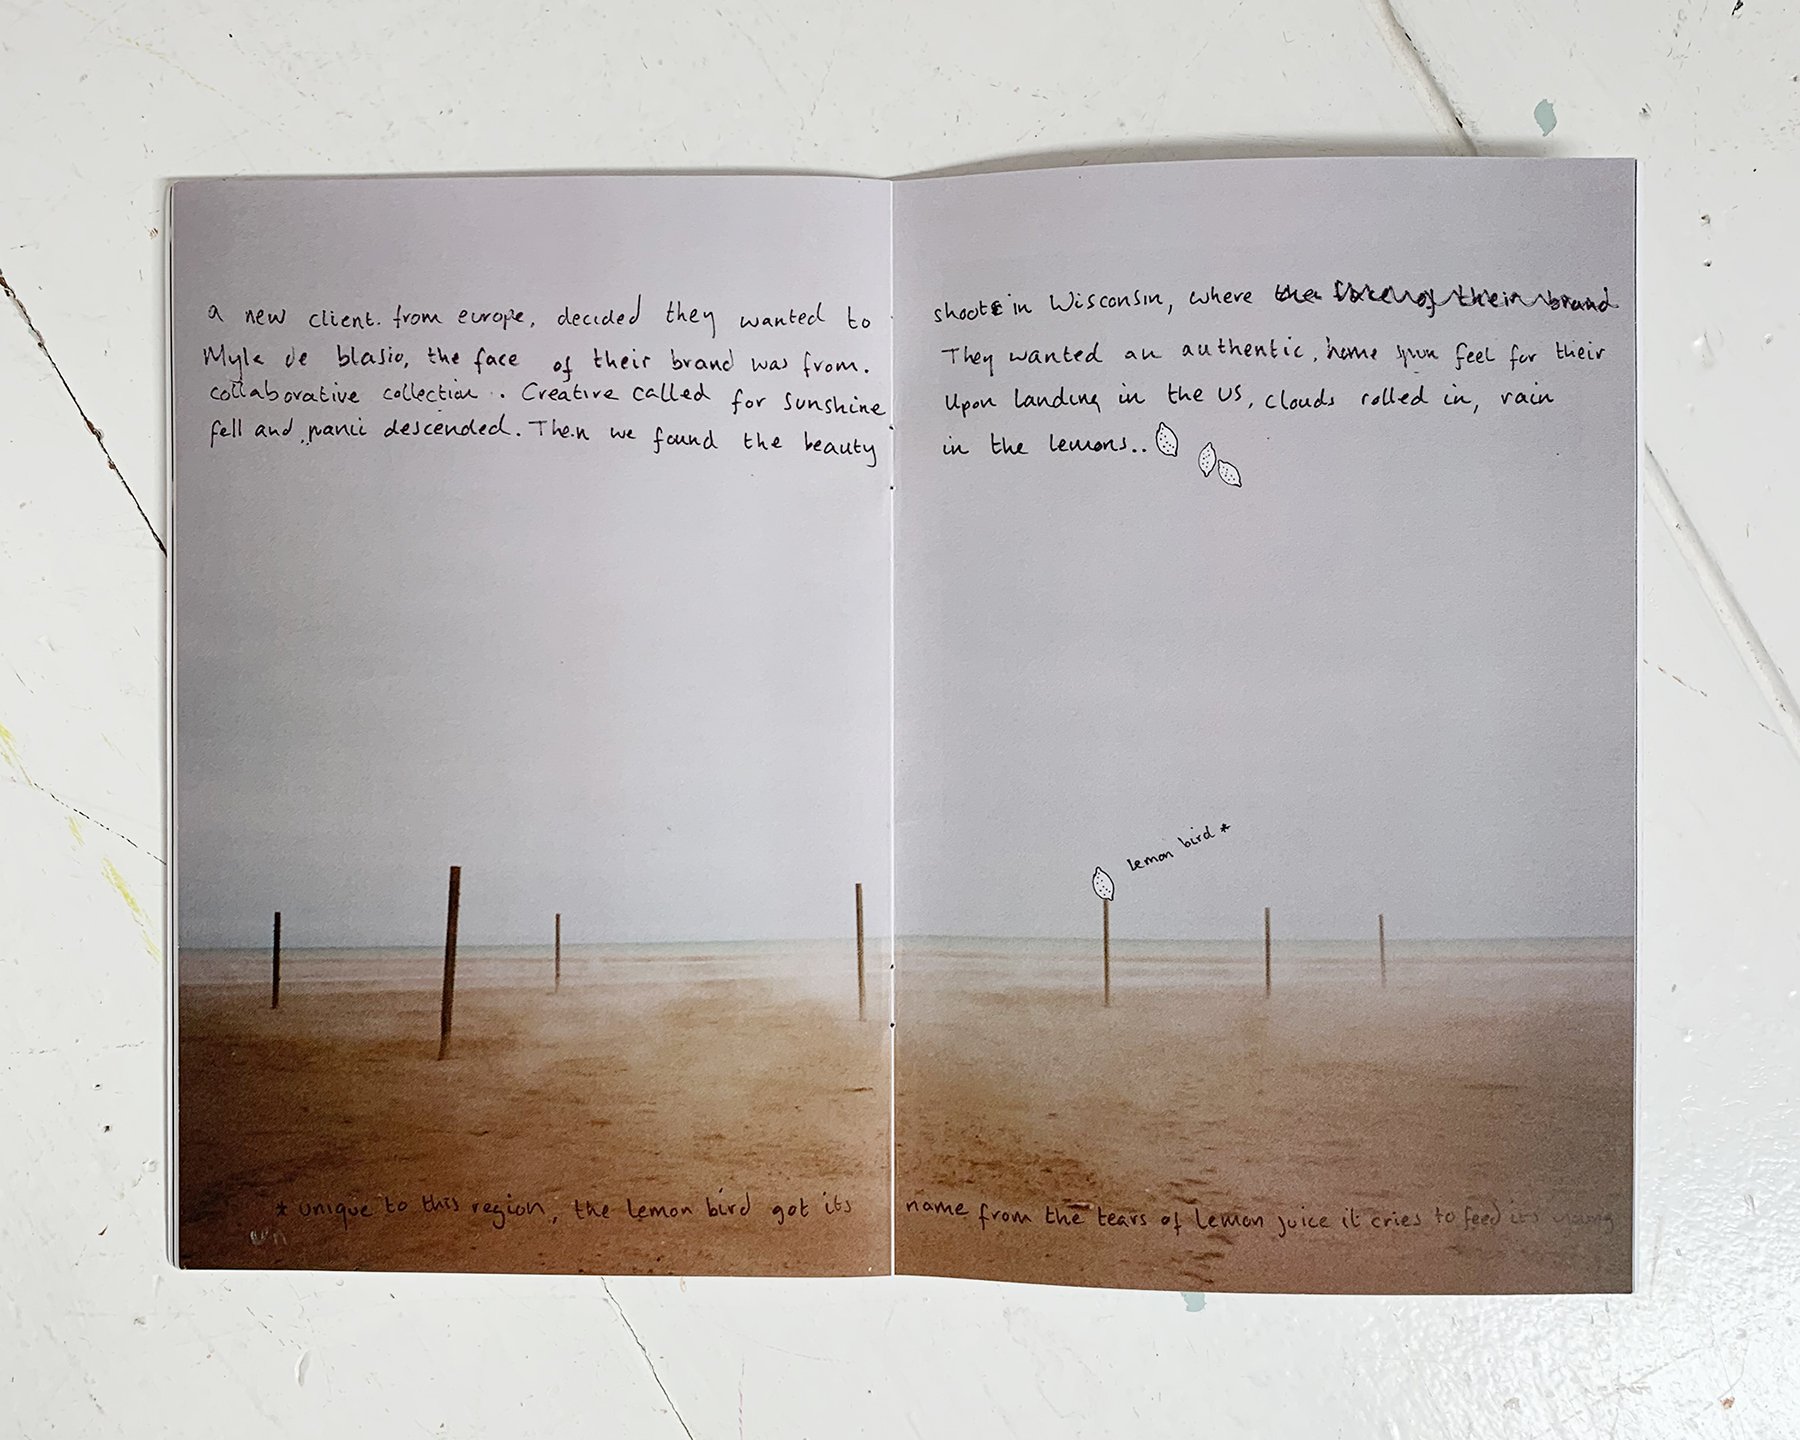 a new client. from europe, decided they wanted to shoot in Wisconsin, where the face of their brand
Myla de blasio, the face of their brand was from. They wanted an authentic, home spun feel for their
collaborative collection.. Creative called for sunshine Upon landing in the US, clouds rolled in, rain
fell and panic descended. Then we found the beauty in the lemons..
lemon bird *
* unique to this region, the lemon bird got its name from the tears of lemon juice it cries to feed its young
un